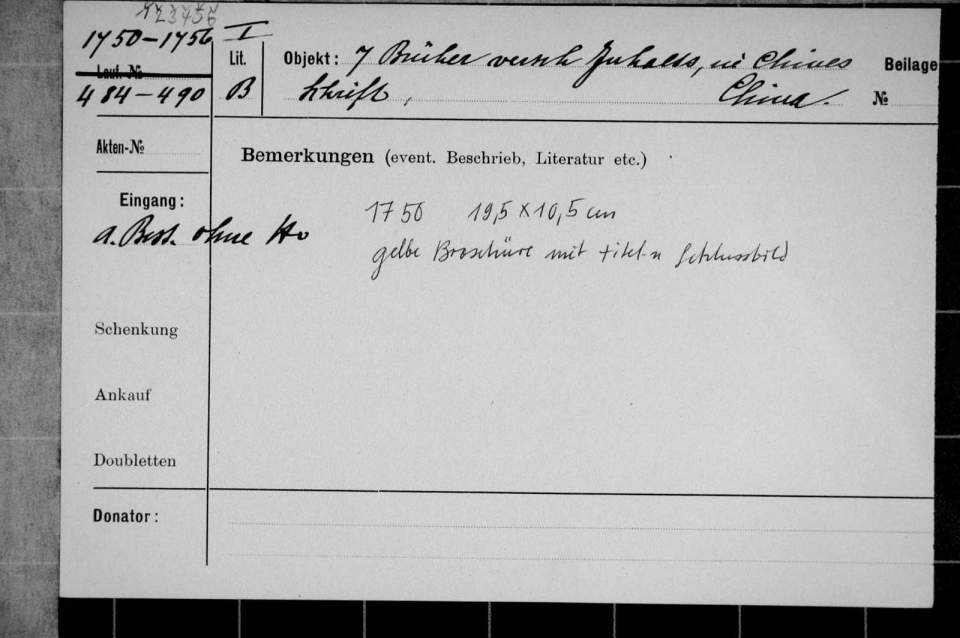 123456
1750-1756 I
Lauf. № Lit. Objekt: 7 Bücher versch Inhalts, in Chines Beilage
484-490 B Schrift, China. №
Akten-№
Bemerkungen (event. Beschrieb, Literatur etc.)
Eingang:
1750 19,5 x 10,5 cm
a. Best. ohne No
gelbe Broschüre mit Titel-u Schlussbild
Schenkung
Ankauf
Doubletten
Donator: